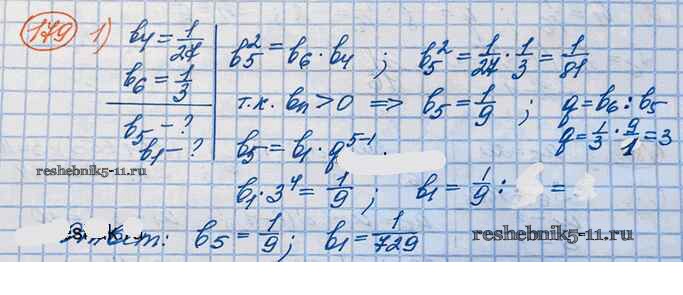 179 1) b₄ = 1/27
b₆ = 1/3
b₅ - ?
b₁ - ?
b₅² = b₆ · b₄ ; b₅² = 1/27 · 1/3 = 1/81
т.к. bn > 0 => b₅ = 1/9 ; q = b₆ : b₅
q = 1/3 · 9/1 = 3
b₅ = b₁ · q⁵⁻¹
b₁ · 3⁴ = 1/9 ; b₁ = 1/9 : =
reshebnik5-11.ru
b₅ = 1/9 ; b₁ = 1/729
reshebnik5-11.ru